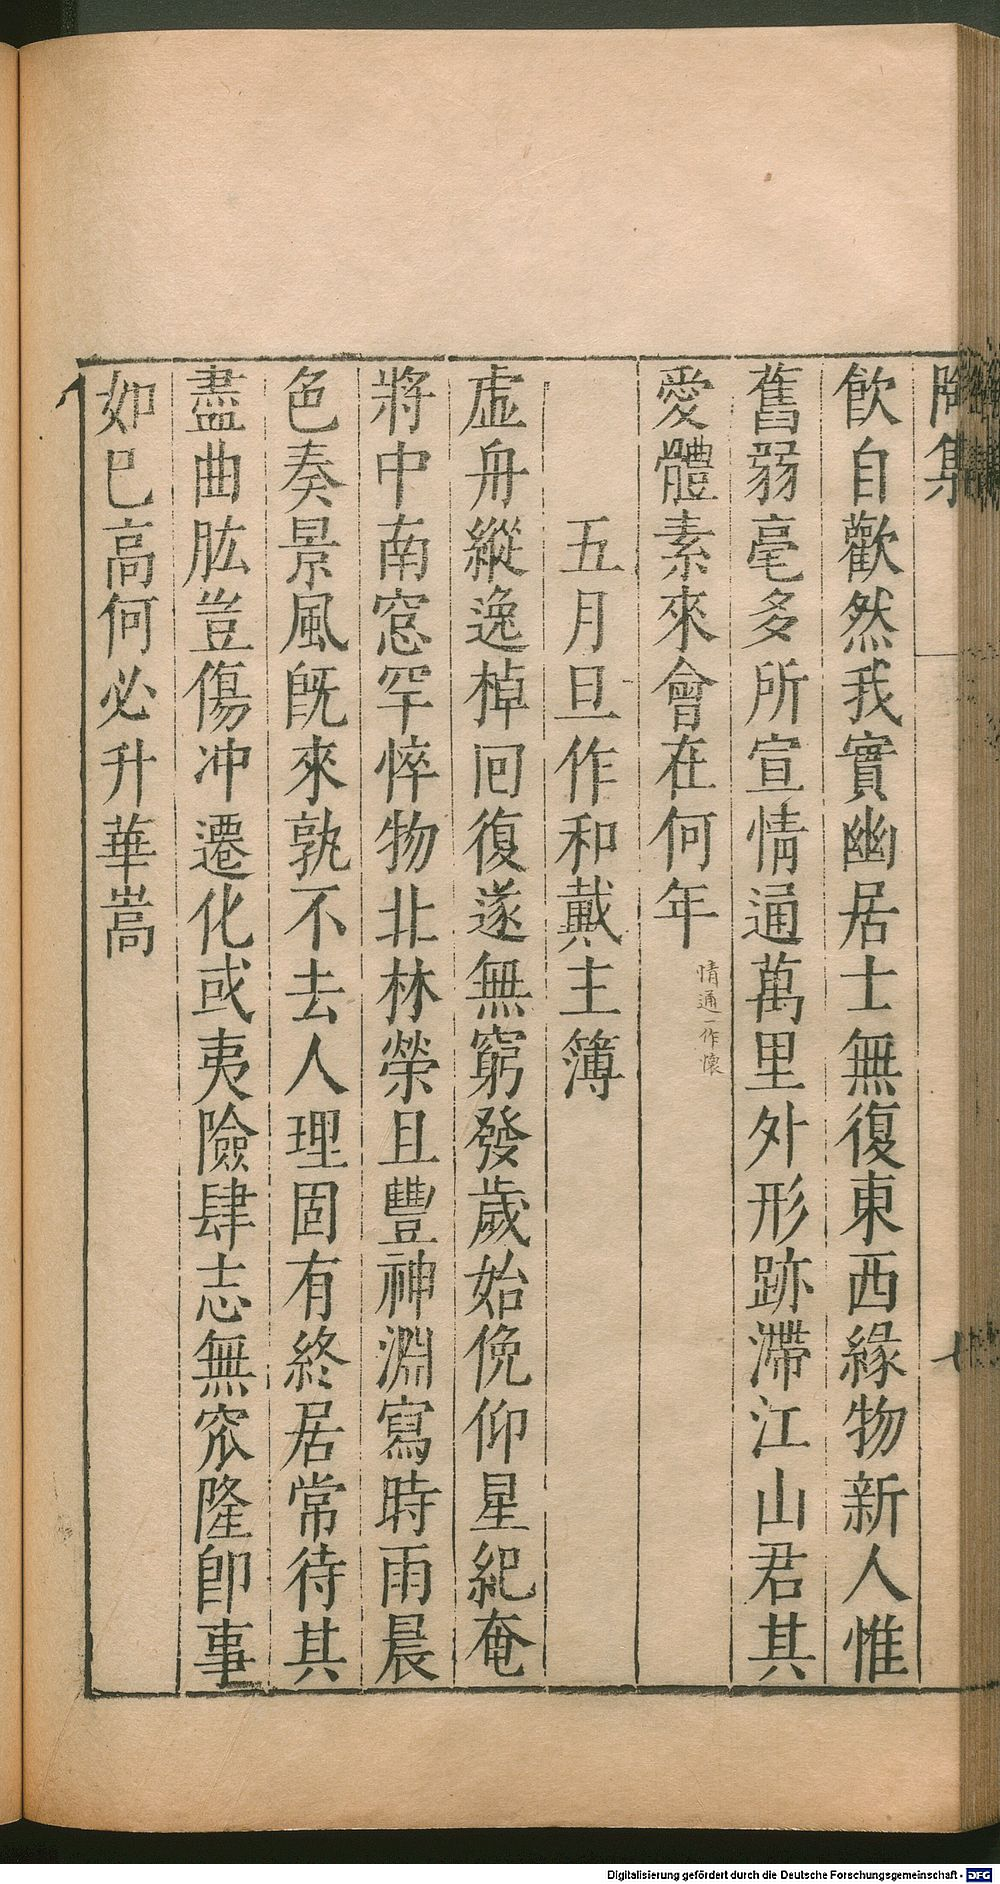 陶集
七
飲自歡然我實幽居士無復東西緣物新人惟
舊弱毫多所宣情通萬里外形跡滯江山君其
愛體素來會在何年情通一作懷
五月旦作和戴主簿
虛舟縱逸棹囘復遂無窮發歲始俛仰星紀奄
將中南窓罕悴物北林榮且豐神淵寫時雨晨
色奏景風旣來孰不去人理固有終居常待其
盡曲肱豈傷冲遷化或夷險肆志無窊隆卽事
如已高何必升華嵩
Digitalisierung gefördert durch die Deutsche Forschungsgemeinschaft - DFG